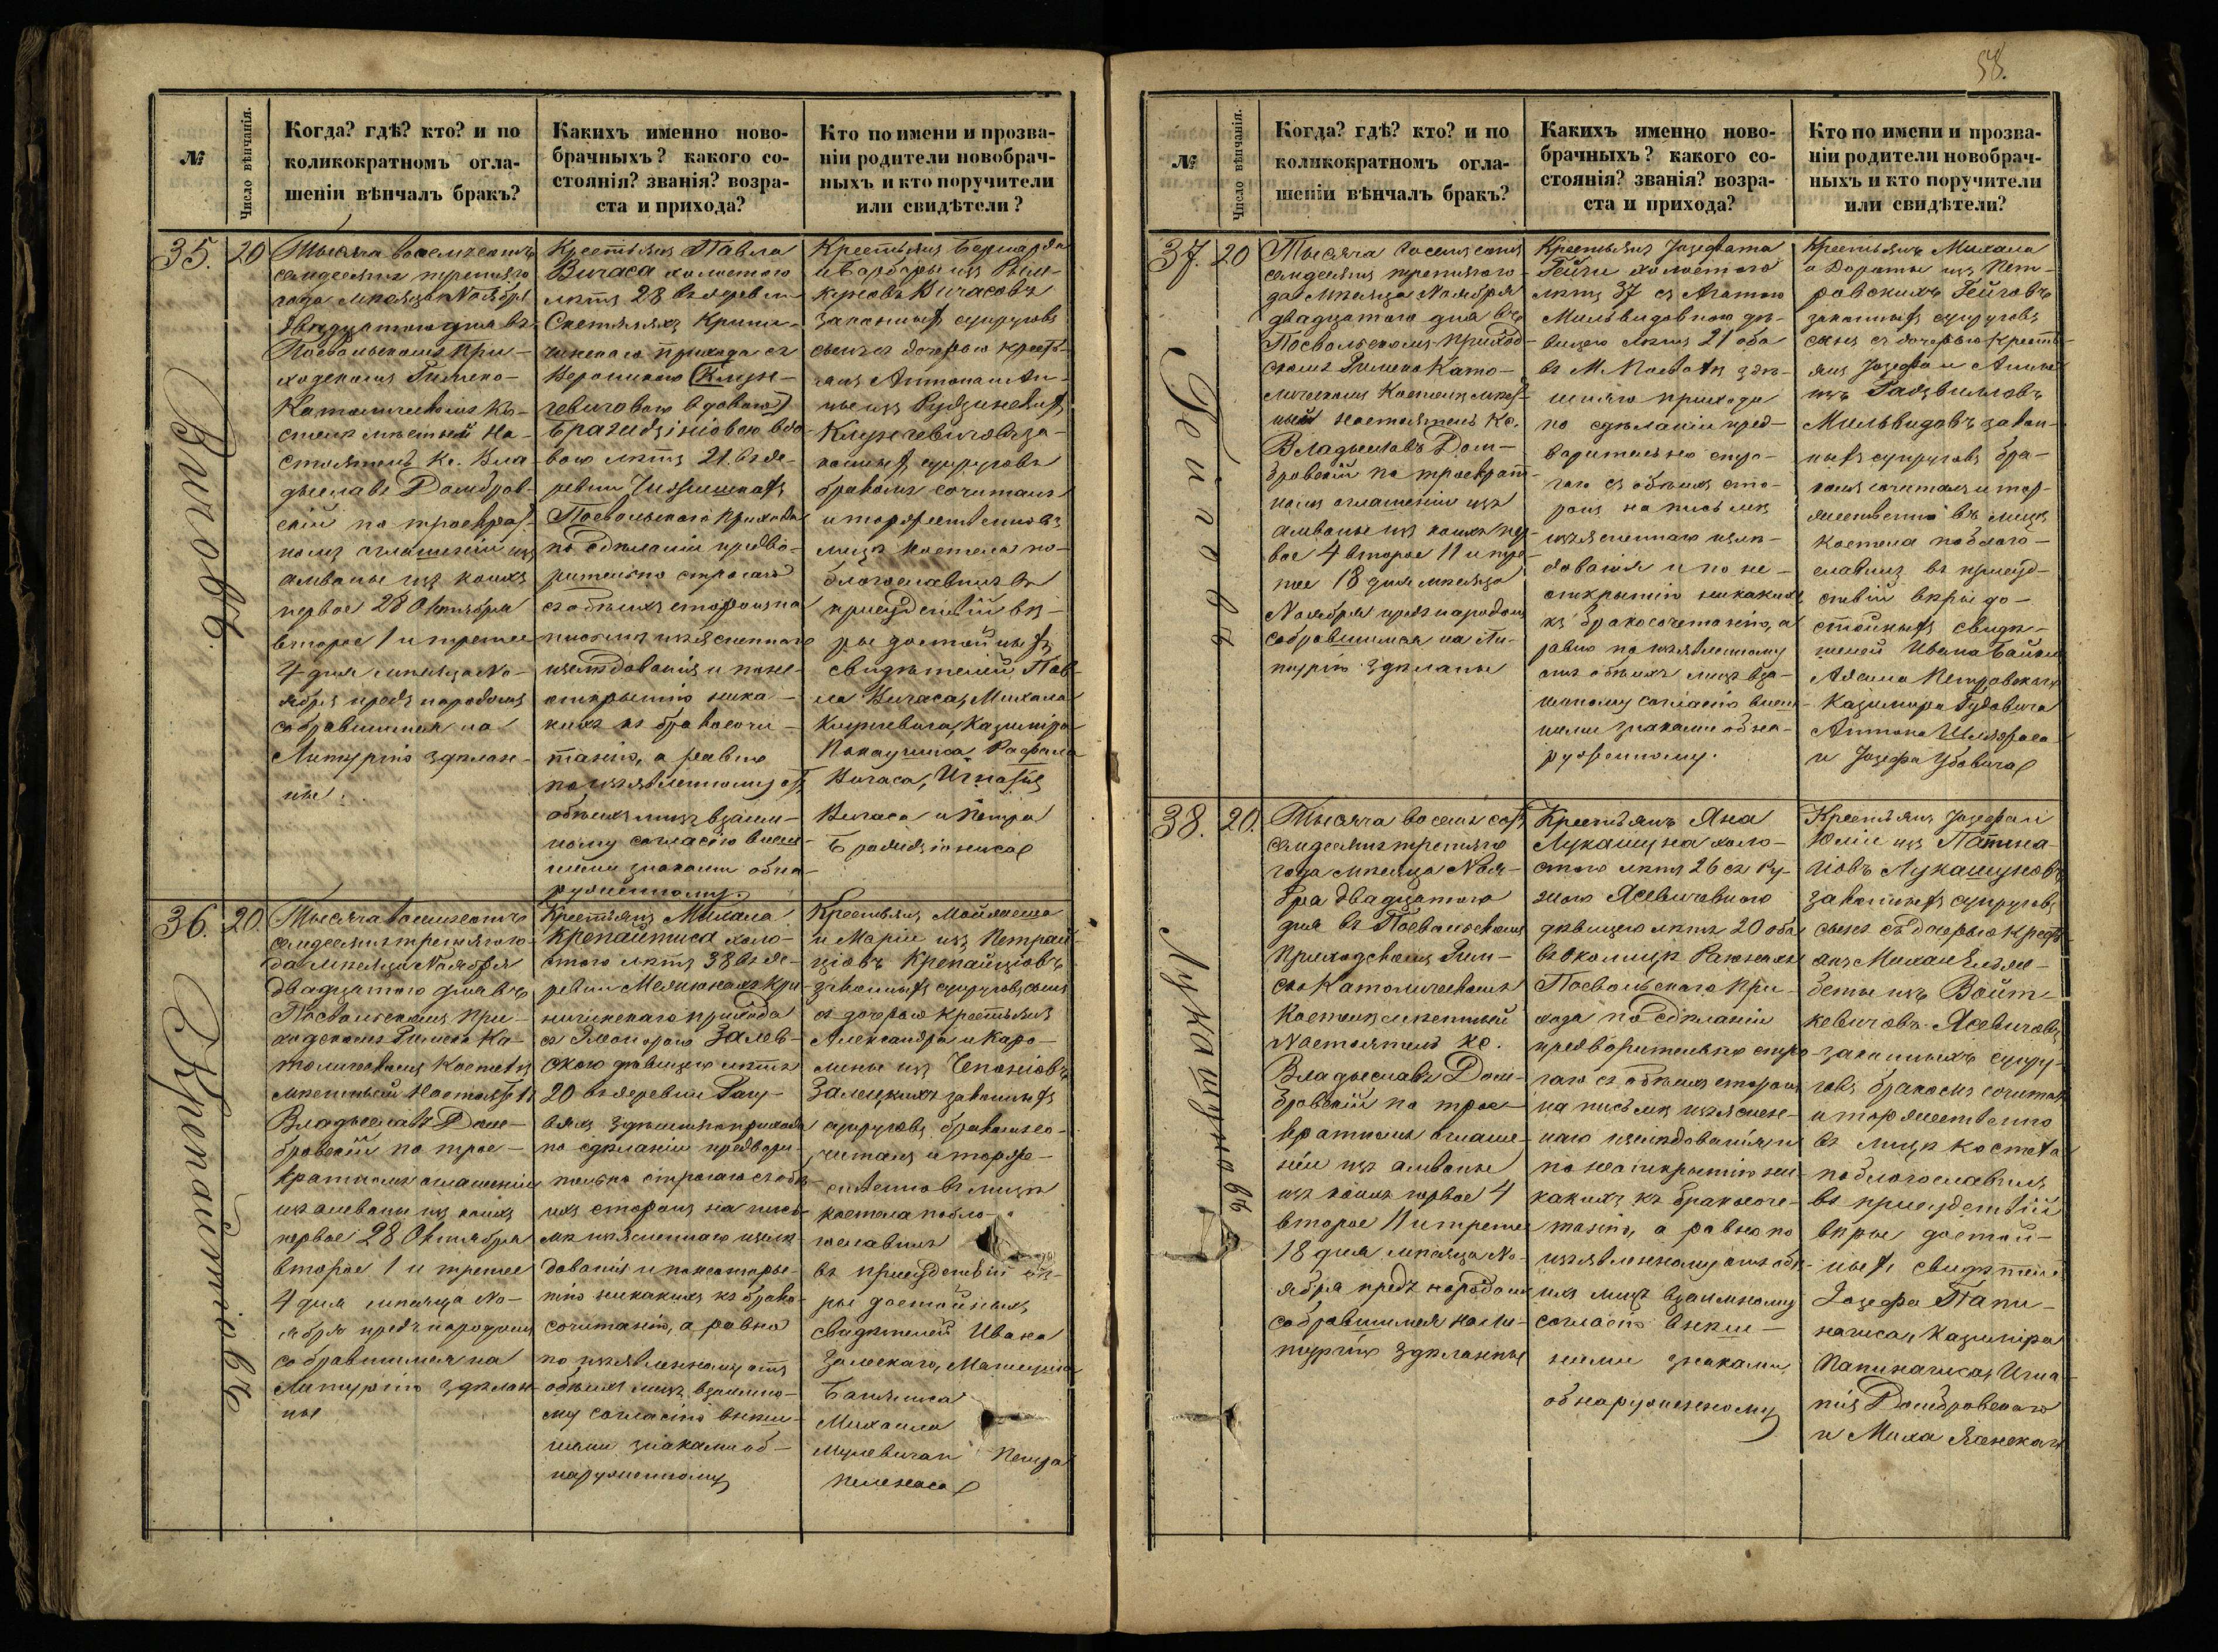 №
Число вѣнчанія.
Когда? гдѣ? кто? и по
коликократномъ огла-
шеніи вѣнчалъ бракъ?
Какихъ именно ново-
брачныхъ? какого со-
стоянія? званія? возра-
ста и прихода?
Кто по имени и прозва-
ніи родители новобрач-
ныхъ и кто поручители
или свидѣтели?
35.
20
Тысяча восемьсотъ
семдесятъ третьяго
года мѣсяца Ноября
двадцатого дня въ
Посвольскомъ При-
ходскомъ Римско-
Католическомъ Ко-
стелѣ мѣстный На-
стоятель Кс. Вла
дыславъ Домбров-
скій по троекрат-
номъ оглашеніи изъ
амвоны изъ коихъ
первое 28 Октября
второе 1 и третее
4 дня мѣсяца Но-
ября предъ народомъ
собравшимся на
Литургію здѣлан-
ны.
Крестьянъ Павла
Вичаса холостого
лѣтъ 28 въ деревни
прихода съ
вдовою
вдо-
вою лѣтъ 21 въ де-
ревни
Посвольскаго прихода
по сдѣланіи предва-
рительно строгаго
съ обѣихъ сторонъ на
письмѣ изъясненнаго
изслѣдованія и по не-
открытію ника-
кихъ къ бракосоче-
танію, а равно
по изъявленному отъ
обѣихъ лицъ взаим-
ному согласію внеш-
ними знаками обна-
руженному.
Крестьянъ Бернарда
и Барбары изъ
Вичасовъ
законныхъ супруговъ
сынъ съ дочерью крестъ-
янъ Антона и Ан-
ны изъ
за-
конныхъ супруговъ
бракомъ сочиталъ
и торжественно въ
лицѣ костела по-
благославилъ въ
присудствіи вѣ-
ры достойныхъ
свидѣтелей Пав-
ла Вичаса, Михала
Казиміра
Рафала
Вичаса, Игнатія
Вичаса и Петра
Вичовъ
36.
20.
Тысяча восемьсотъ
семдесятъ третьяго го-
да мѣсяца Ноября
двадцатого дня въ
Посвольскомъ При-
ходскомъ Римско Ка-
толическомъ Костелѣ
мѣстный Настоятель
Владыславъ Дом-
бровскій по трое-
кратномъ оглашеніи
изъ амвоны изъ коихъ
первое 28 Октября
второе 1 и третее
4 дня мѣсяца Но-
ября предъ народомъ
собравшимся на
Литургію здѣлан-
ны
Крестьянъ Михала
Крепайтиса холо-
стого лѣтъ 38 въ де-
ревни
прихода
съ Элеонорою Залев-
скою дѣвицею лѣтъ
20 въ деревни
здѣшняго прихода
по сдѣланіи предвари-
тельно строгаго съ обѣ-
ихъ сторонъ на пись-
мѣ изъясненнаго изслѣ-
дованія и по неоткры-
тію никакихъ къ брако-
сочитанію, а равно
по изъявленному отъ
обѣихъ лицъ взаимно-
му согласію внеш-
ними знаками об-
наруженному
Крестьянъ
и Маріи изъ Петрай-
цѣовъ Крепайціовъ
законныхъ супруговъ сынъ
съ дочерью крестьянъ
Александра и Каро-
лины изъ
Залевскихъ законныхъ
супруговъ бракомъ со-
читалъ и торже-
ственно въ лицѣ
костела побло-
гославилъ
въ присудствіи вѣ-
ры достойныхъ
свидѣтелей Ивана
Залескаго,
Михаила
Петра
Крепайтіовъ
58.
№
Число вѣнчанія.
Когда? гдѣ? кто? и по
коликократномъ огла-
шеніи вѣнчалъ бракъ?
Какихъ именно ново-
брачныхъ? какого со-
стоянія? званія? возра-
ста и прихода?
Кто по имени и прозва-
ніи родители новобрач-
ныхъ и кто поручители
или свидѣтели?
37.
20
Тысяча восемьсотъ
семдесятъ третьяго го-
да мѣсяца Ноября
двадцатого дня въ
Посвольскомъ Приход-
скомъ Римско Като-
лическомъ Костелѣ мѣст-
ный настоятель Кс.
Владыславъ Дом-
бровскій по троекрат-
номъ оглашеніи изъ
амвоны изъ коихъ пер-
вое 4 второе 11 и тре-
тее 18 дня мѣсяца
Ноября предъ народомъ
собравшимся на Ли-
тургію здѣланы
Крестьянъ Іозефата
Гейчи холостого
лѣтъ 37 съ Агатою
Мильвидовною дѣ-
вицею лѣтъ 21 оба
въ М. Посволѣ здѣ-
шняго прихода
по сдѣланіи пред-
варительно стро-
гаго съ обѣихъ сто-
ронъ на письмѣ
изъясненнаго изслѣ-
дованія и по не-
открытію никакихъ
къ бракосочетанію, а
равно по изъявленному
отъ обѣихъ лицъ вза-
имному согласію внеш-
ними знаками обна-
руженному.
Крестьянъ Михала
и Дороты изъ Пет-
ровскихъ Гейчовъ
законныхъ супруговъ
сынъ съ дочерью крестъ-
янъ Іозефа и Анны
изъ Радзвиловъ
Мильвидовъ закон-
ныхъ супруговъ бра-
комъ сочиталъ и тор-
жественно въ лицѣ
костела поблаго-
славилъ въ присуд-
ствіи вѣры до-
стойныхъ свидѣ-
телей Ивана
Адама Петровскаго
Казимира Гудовича
Антона
и Іозефа
Гейчовъ
38.
20.
Тысяча восемьсотъ
семдесятъ третьяго
года мѣсяца Нояб-
бра двадцатого
дня въ Посвольскомъ
Приходскомъ Рим-
ско Католическомъ
Костелѣ мѣстный
Настоятель Кс.
Владыславъ Дом-
бровскій по трое-
кратномъ оглаше-
ніи изъ амвоны
изъ коихъ первое 4
второе 11 и третее
18 дня мѣсяца Но-
ября предъ народомъ
собравшимся на Ли-
тургію здѣланны
Крестьянъ Яна
Лукашуна холо-
стого лѣтъ 26 съ Ру-
жею Ясевичовною
дѣвицею лѣтъ 20 оба
въ околицѣ
Посвольскаго При-
хода по сдѣланіи
предварительно стро-
гаго съ обѣихъ сторонъ
на письмѣ изъяснен-
наго изслѣдованія и
по неоткрытію ни-
какихъ къ бракосоче-
танію, а равно по
изъявленному отъ обѣ-
ихъ лицъ взаимному
согласію внѣш-
ними знаками
обнаруженному
Крестьянъ Іозефа и
Юліи изъ
Лукашуновъ
законныхъ супруговъ
сынъ съ дочерью крестъ-
янъ Михала и Елжбе-
беты изъ Войт-
кевичовъ Ясевичовъ
законныхъ супру-
говъ бракомъ сочиталъ
и торжественно
въ лицѣ костела
поблогославилъ
въ присудствіи
вѣры достой-
ныхъ свидѣтелей
Іозефа Папи-
Казиміра
Игна-
тія Домбровскаго
и Миха
Лукашуновъ